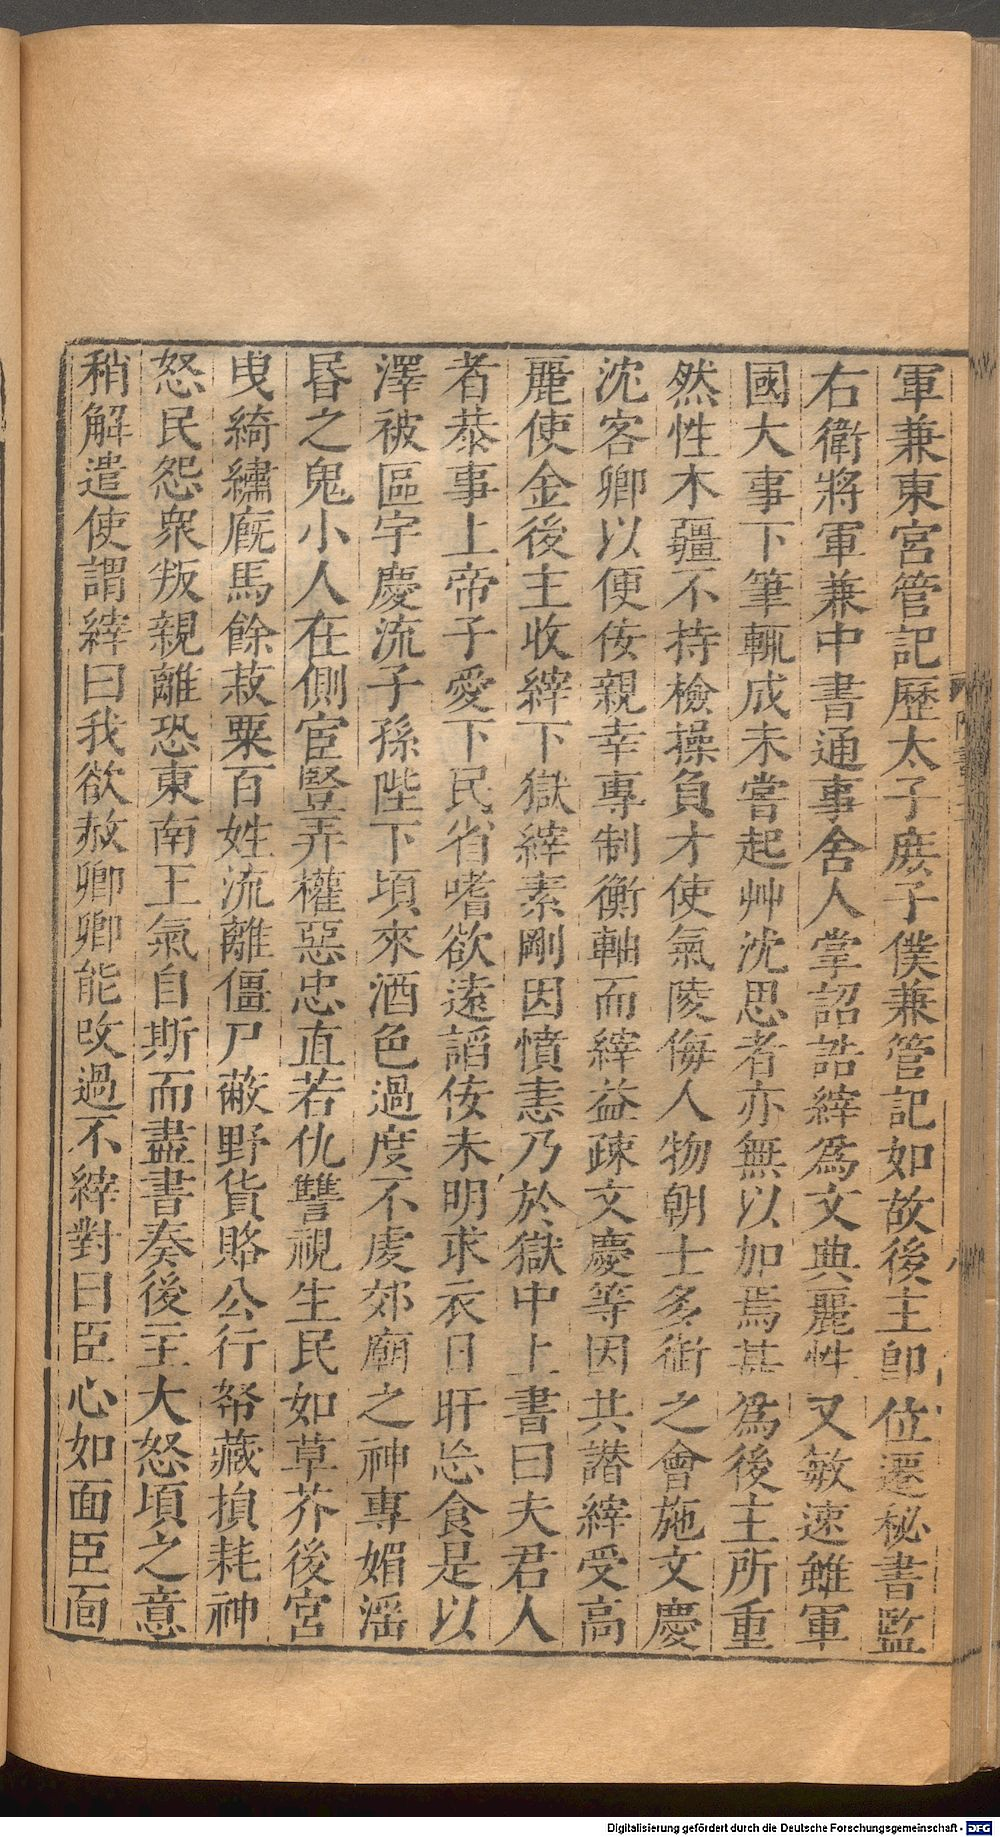 軍兼東宮管記歷太子庶子僕兼管記如故後主卽位遷秘書監
右衛將軍兼中書通事舍人掌詔誥縡爲文典麗性又敏速雖軍
國大事下筆輒成未嘗起艸沈思者亦無以加焉甚爲後主所重
然性木彊不持檢操負才使氣陵侮人物朝士多銜之會施文慶
沈客卿以便佞親幸專制衡軸而縡益疎文慶等因共譖縡受高
麗使金後主收縡下獄縡素剛因憤恚乃於獄中上書曰夫君人
者恭事上帝子愛下民省嗜欲遠謟佞未明求衣日旰忘食是以
澤被區宇慶流子孫陛下頃來酒色過度不虔郊廟之神專媚滛
昬之鬼小人在側宦豎弄權惡忠直若仇讐視生民如草芥後宮
曳綺繡廐馬餘菽粟百姓流離僵尸蔽野貨賂公行帑藏損耗神
怒民怨衆叛親離恐東南王氣自斯而盡書奏後主大怒頃之意
稍解遣使謂縡曰我欲赦卿卿能改過不縡對曰臣心如面臣面
Digitalisierung gefördert durch die Deutsche Forschungsgemeinschaft - DFG